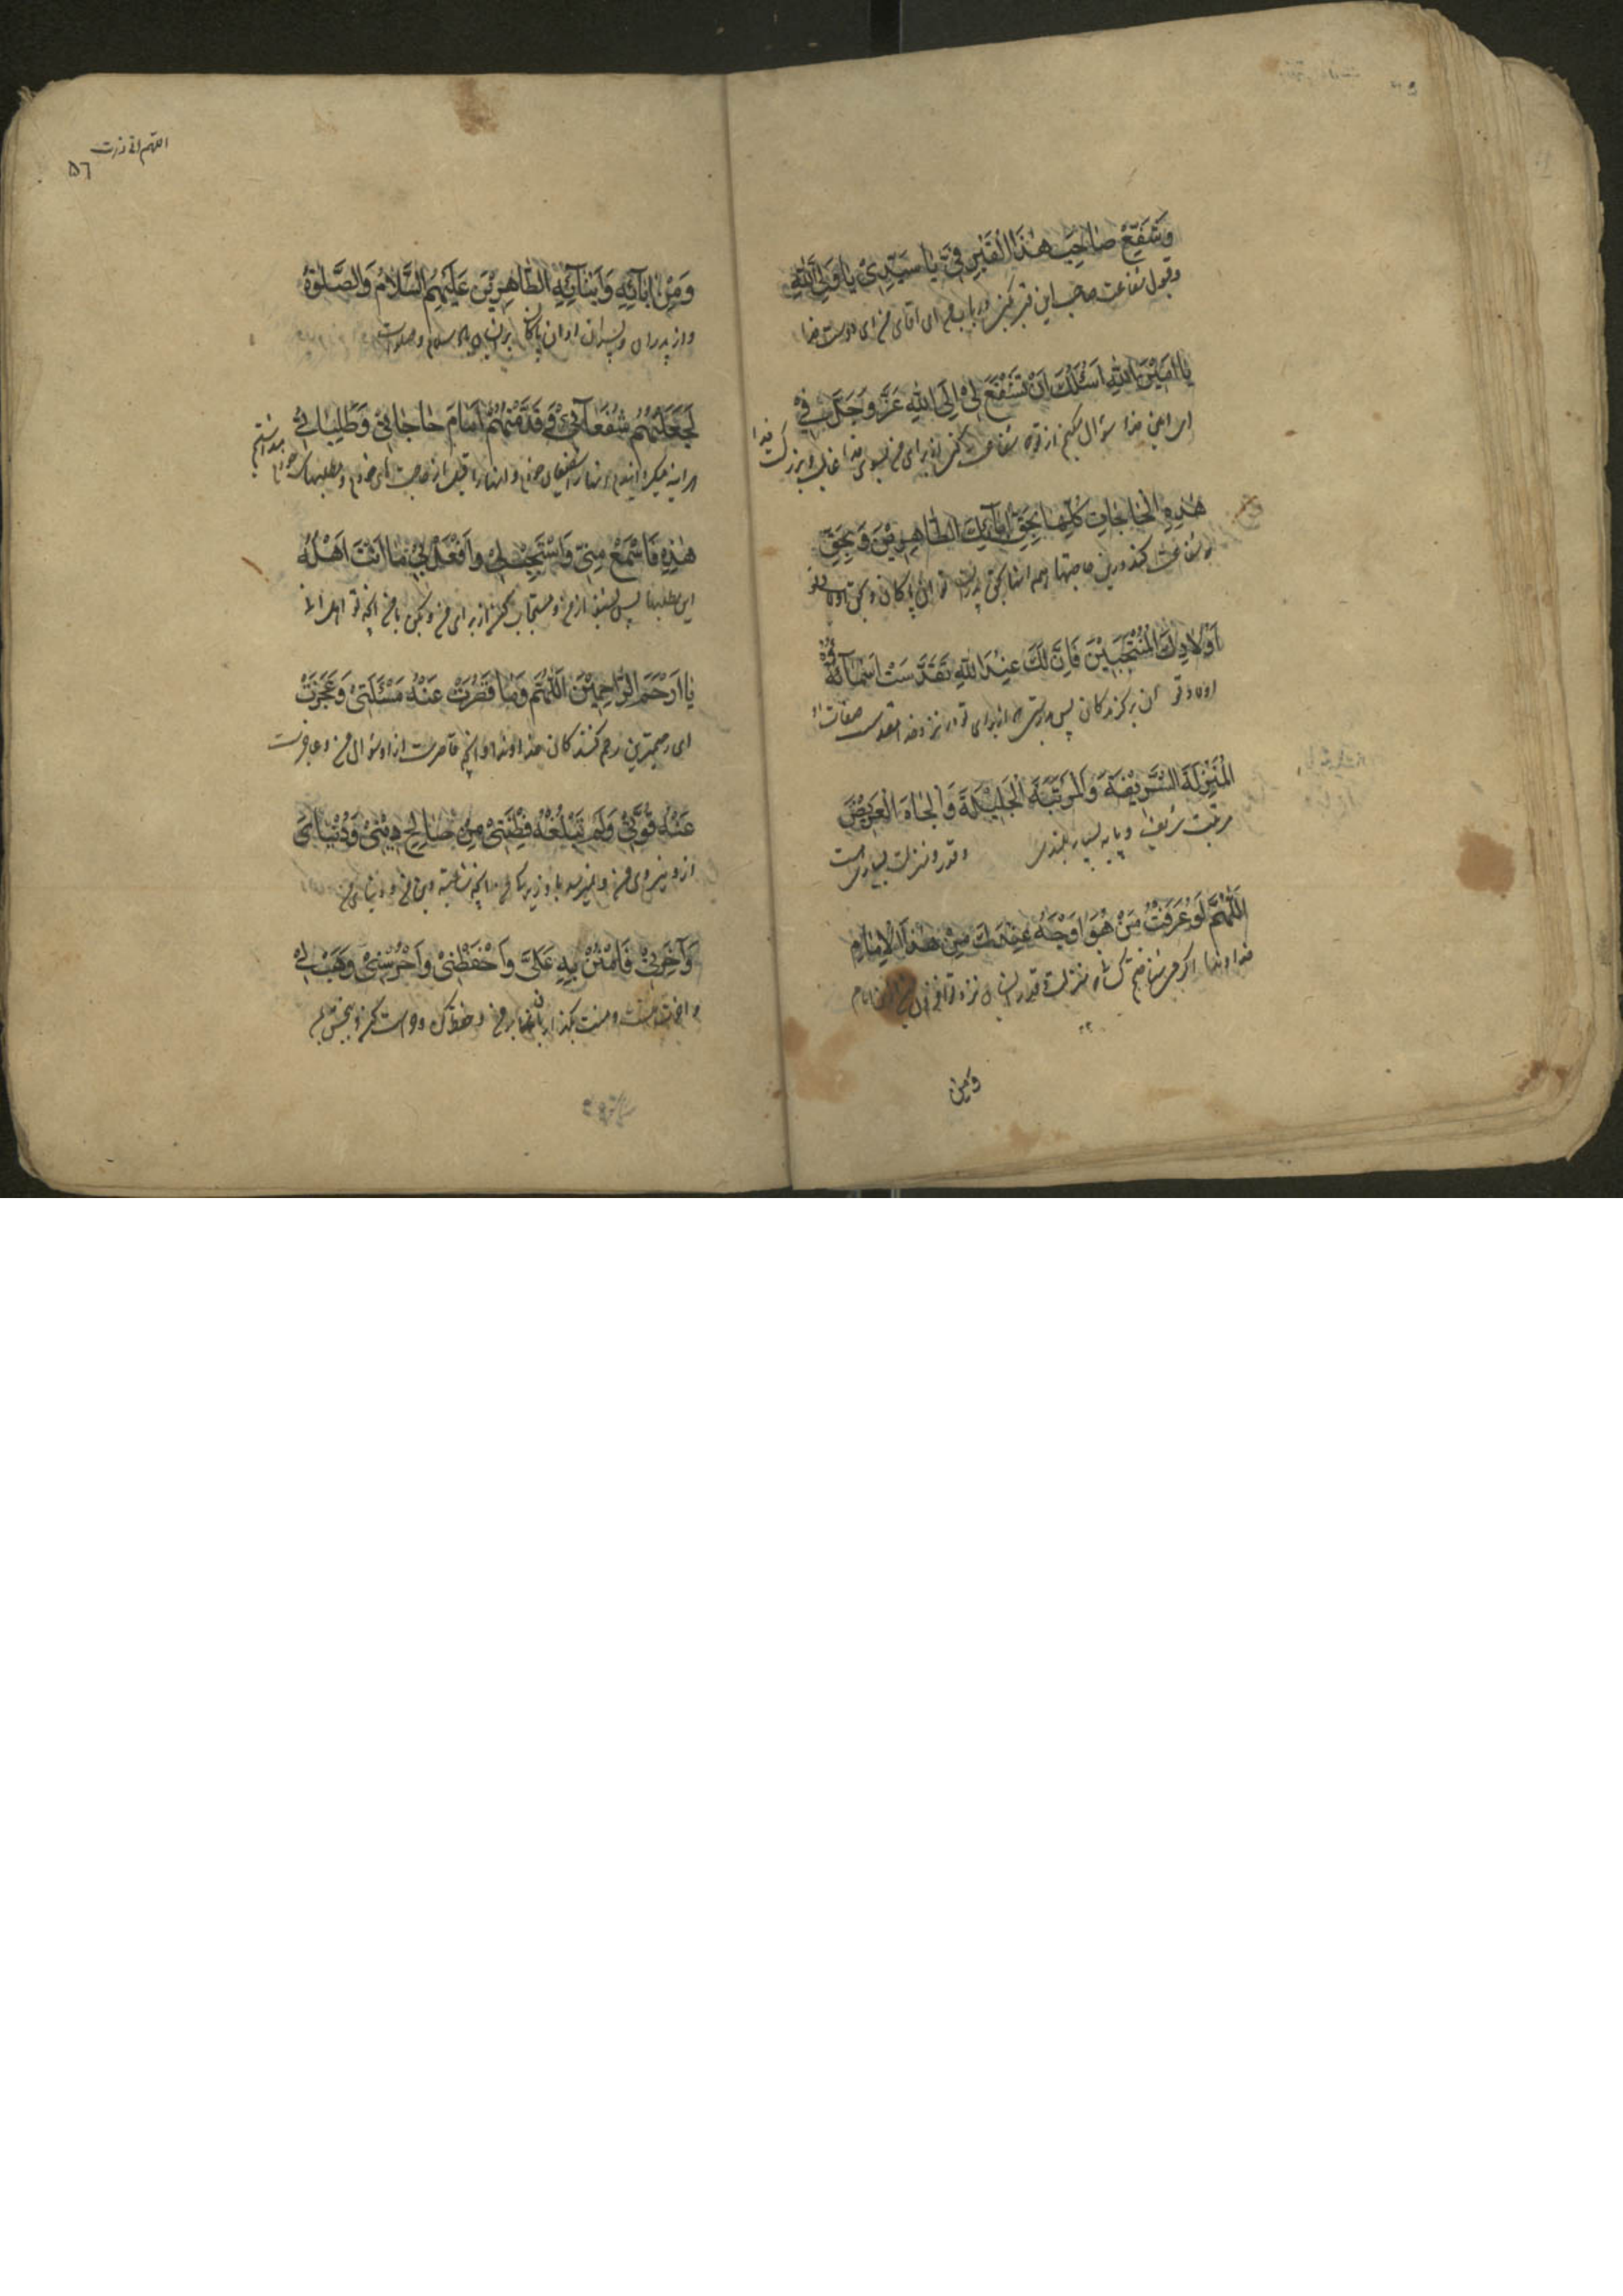 وَشَفِّعْ صٰاحِبَ هٰذَا الْقَبْرِ فِیَّ یٰا سَیِّدِیْ یٰا وَلِیَّ اللّٰهِ
وقبول شفاعت صاحب این قبر کن در باب من ای اقای من ای دوست خدا
یٰا اَمِیْنَ اللّٰهِ اَسْئَلُکَ اَنْ تَشْفَعَ لِیْ اِلَی اللّٰهِ عَزَّ وَجَلَّ فِیْ
ای امین خدا سؤال میکنم از تو که شفاعت کنی برای من بسوی خدا غالب و بزرک
هٰذِهِ الْحٰاجٰاتِ کُلِّهٰا بِحَقِّ اٰبٰآئِکَ الطّٰاهِرِیْنَ وَبِحَقِّ
درین حاجتها همه انها بحق پدران تو ان پاکان و بحق اولاد تو
اَوْلٰادِکَ الْمُنْتَجَبِیْنَ فَاِنَّ لَکَ عِنْدَ اللّٰهِ تَقَدَّسَتْ اَسْمٰآئُهُ
اولاد تو ان برکزیدکان پس بدرستی که از برای تو در نزد خدا مقدس صفات او
الْمَنْزِلَةَ الشَّرِیْفَةَ وَالْمَرْتَبَةَ الْجَلِیْلَةَ وَالْجٰاهَ الْعَرِیْضَ
مرتبت شریف و پایه بسیار بلند و قدر و منزلت بسیار است
اَللّٰهُمَّ لَوْ عَرَفْتُ مَنْ هُوَ اَوْجَهُ عِنْدَکَ مِنْ هٰذَا الْاِمٰامِ
خداوندا اکر می شناختم نزد تو از این امام
وَمِنْ
اللهم انی زرت
۵٦
وَمِنْ اٰبٰآئِهِ وَاَبْنٰآئِهِ الطّٰاهِرِیْنَ عَلَیْهِمُ السَّلٰامُ وَالصَّلٰوةُ
و از پدران و پسران او ان پاکان بر ایشان باد سلام و صلوات
لَجَعَلْتُهُمْ شُفَعٰآئِیْ وَقَدَّمْتُهُمْ اَمٰامَ حٰاجٰاتِیْ وَطَلِبٰاتِیْ
هراینه میکردانیدم انها را شفیعان خود و انها را قبل از حاجت های خودم و مطلبهای خود
هٰذِهِ فَاسْمَعْ مِنِّیْ وَاسْتَجِبْ لِیْ وَافْعَلْ بِیْ مٰا اَنْتَ اَهْلُهُ
این مطلبها پس بشنو از من و مستجاب کن از برای من و بکن با من انچه تو اهل انی
یٰا اَرْحَمَ الرّٰاحِمِیْنَ اَللّٰهُمَّ وَمٰا قَصُرَتْ عَنْهُ مَسْئَلَتِیْ وَعَجَزَتْ
ای رحیمترین رحم کنندکان خداوندا و انچه قاصرست از او سؤال من و عاجزست
عَنْهُ قُوَّتِیْ وَلَمْ تَبْلُغْهُ فِطْنَتِیْ مِنْ صٰالِحِ دِیْنِیْ وَدُنْیٰایَ
از او نیروی من و نمیرسد باو زیرکی من از انچه شایسته دین من و دنیای من
وَاٰخِرَتِیْ فَامْنُنْ بِهِ عَلَیَّ وَاحْفَظْنِیْ وَاحْرُسْنِیْ وَهَبْ لِیْ
و منت بکذار بان بر من و حفظ کن و حراست کن و ببخش بمن